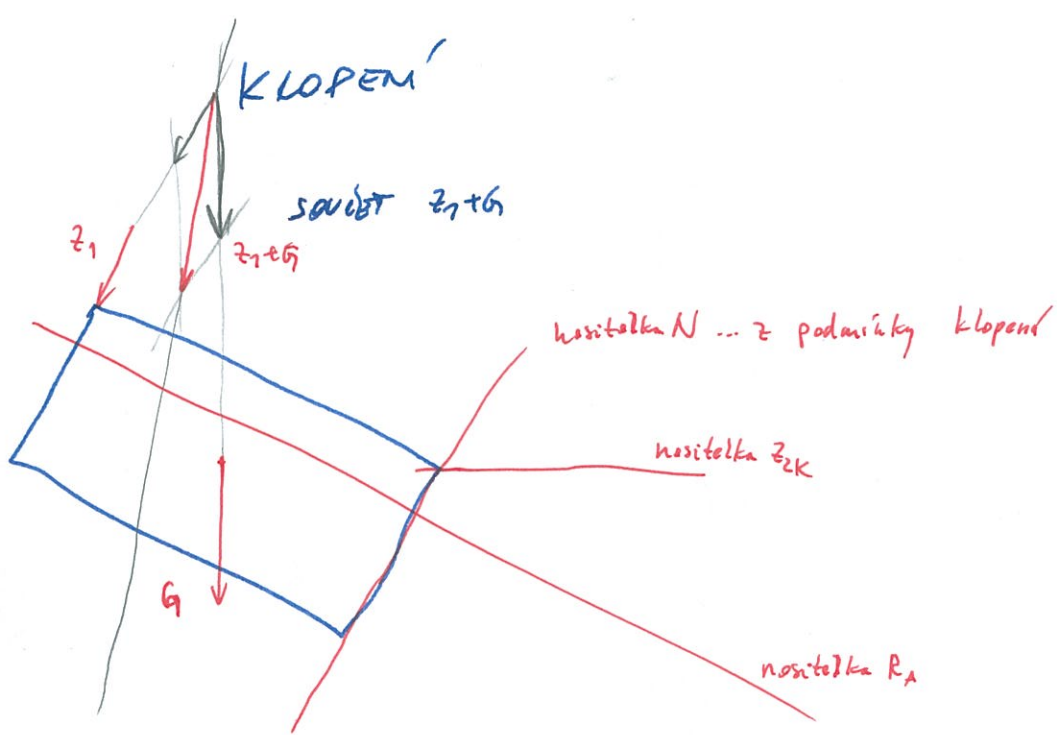 KLOPENÍ
SOUČET Z₁+G
Z₁
Z₁+G
nositelka N ... z podmínky klopení
nositelka Z₂K
G
nositelka R_A